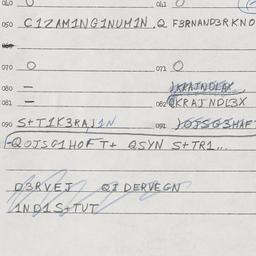 040
041
050 C1ZAM1NG1NUM1N .Q F3RNAND3RKNO
070
071
080 –
081 –
082 QKRAJNDL3X
090 S+T1K3RAJ1N
091 )OJSG3HAF
-QOJSG1HOF T+ QSYN S+TR1...
D3RVEJ QI DERVEGN
1ND1S+TUT